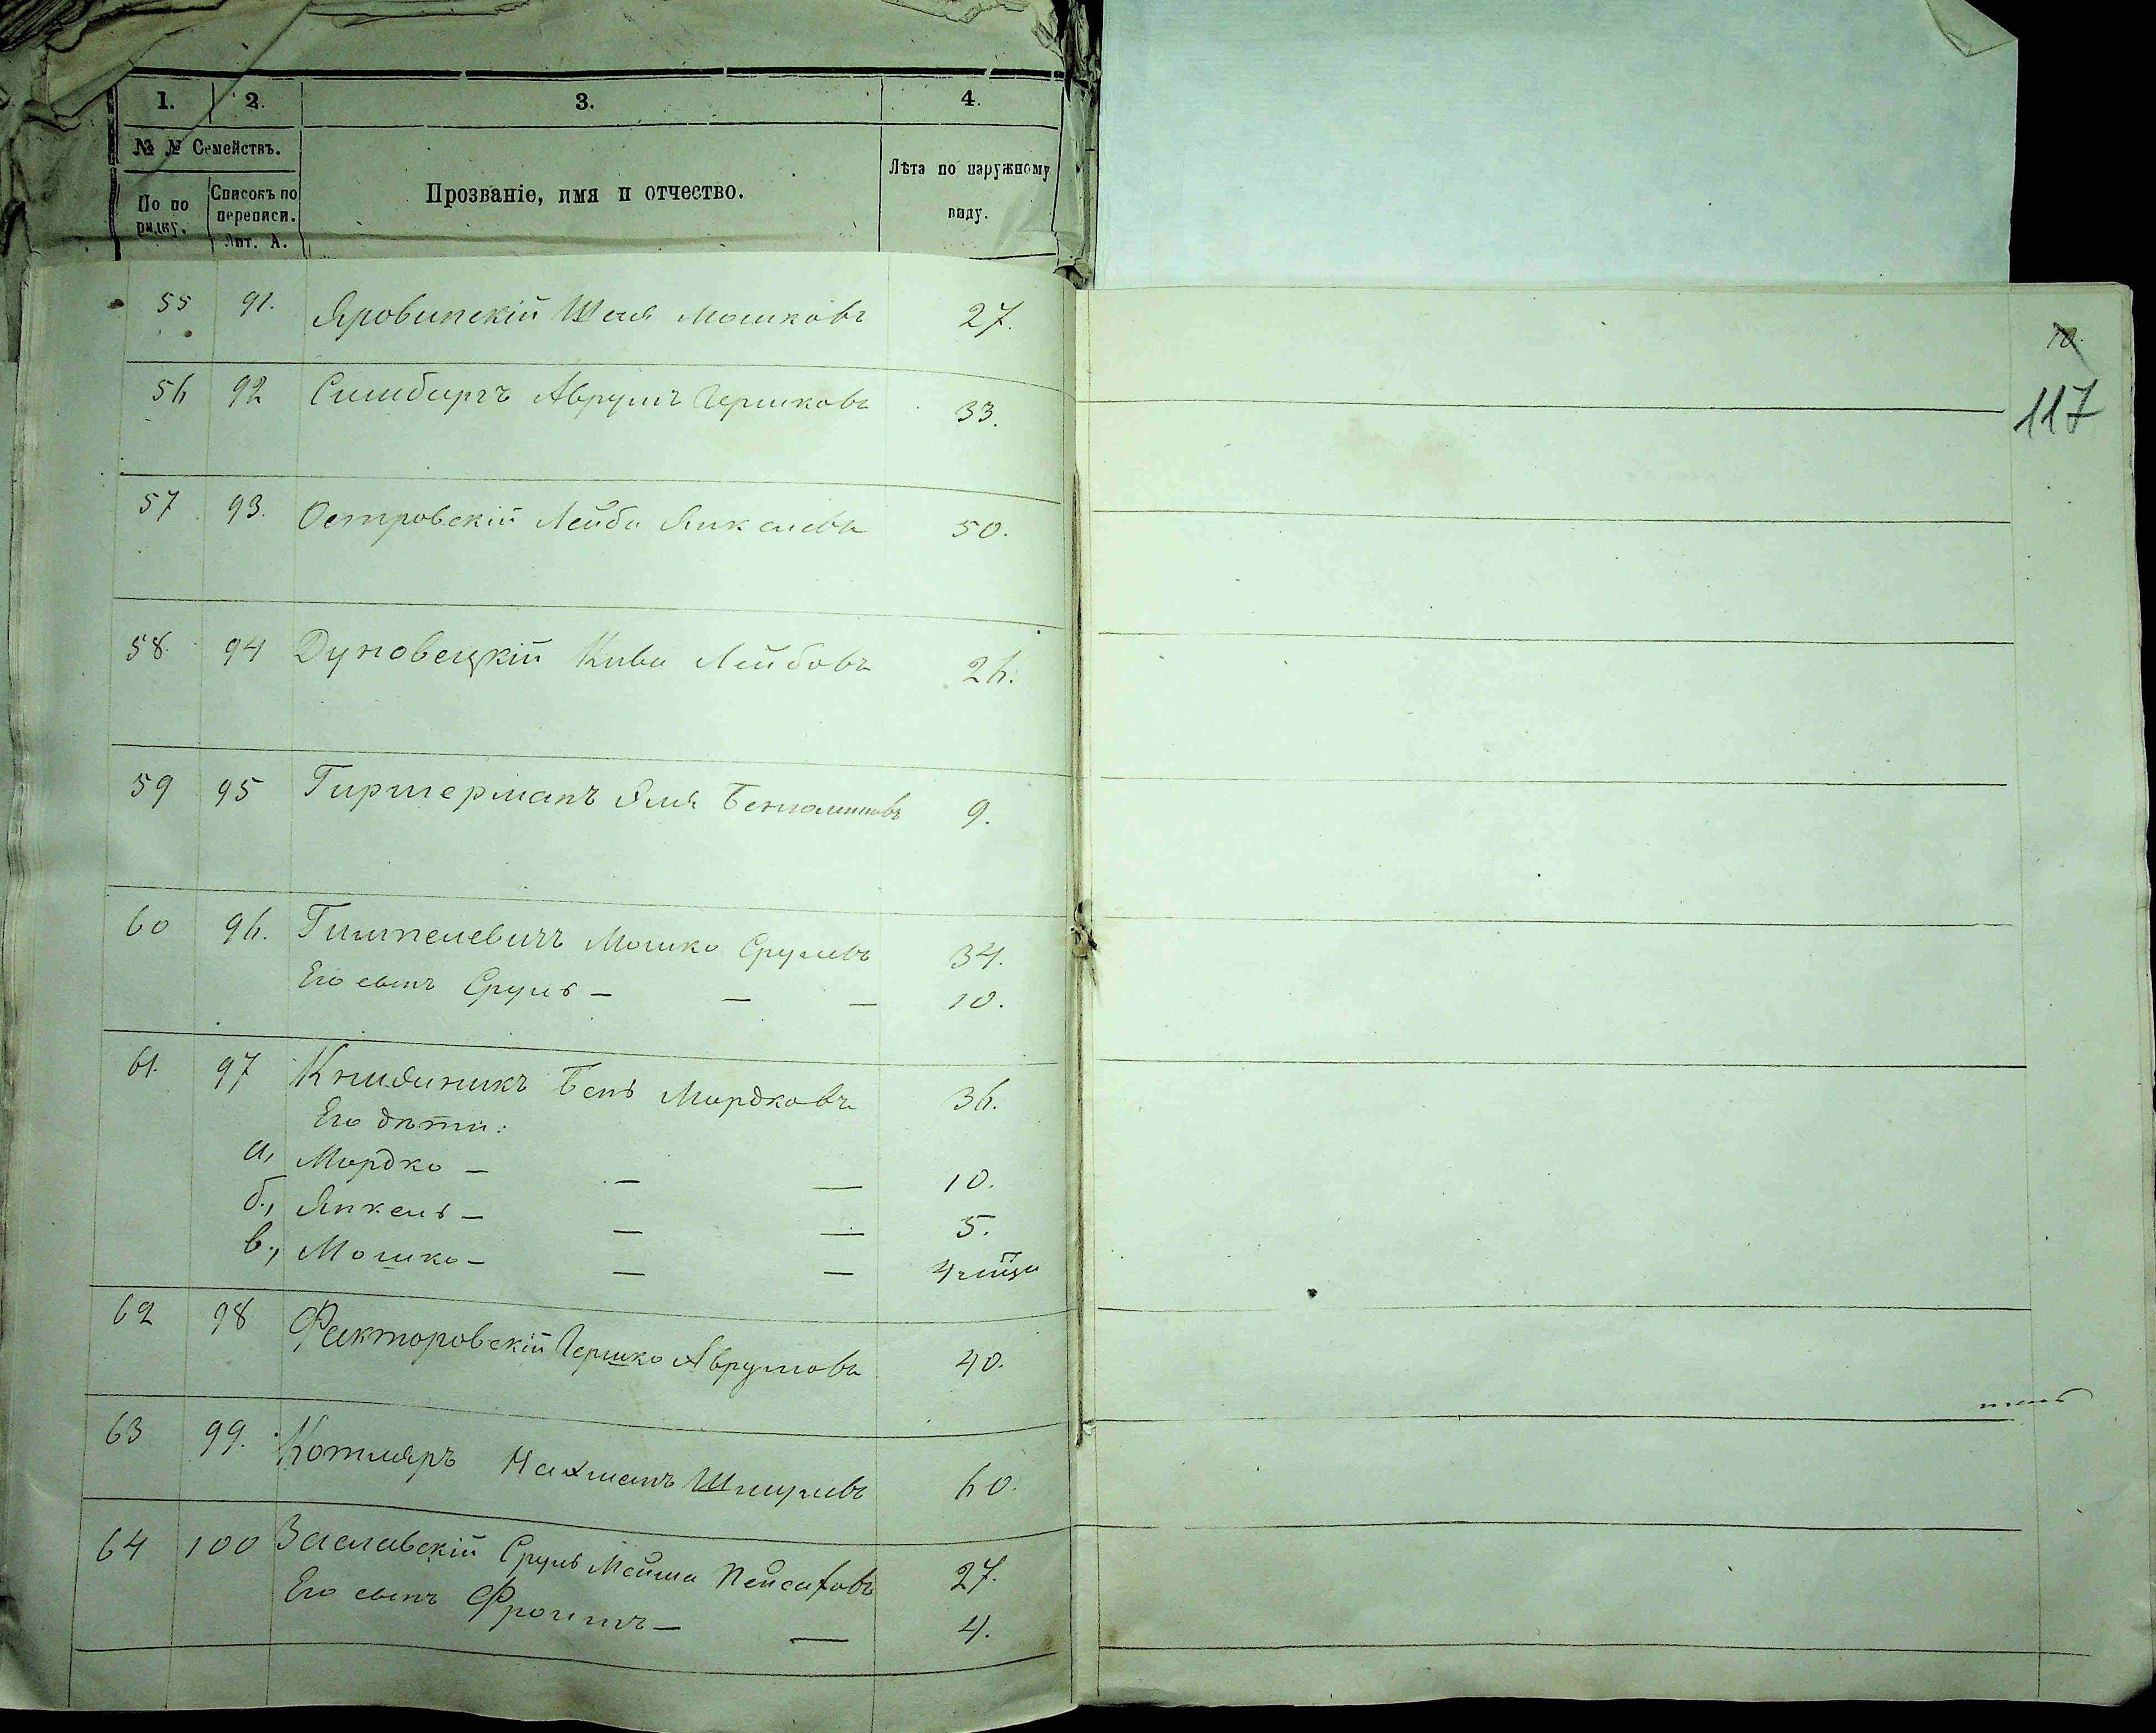 1. 2. 3. 4.
№ № Семействъ.
По по рядку.
Списокъ по переписи. Лит. А.
Прозваніе, имя и отчество.
Лѣта по наружному виду.
55 91. Яровинскій Шая Мошковъ 27.
56 92 Симбиргъ Аврумъ Гершковъ 33.
57 93. Островскій Лейба Янкелевъ 50.
58. 94 Дуновецкій Кива Лейбовъ 26.
59 95 Гиршерманъ Эля Беніаминовъ 9.
60 96. Гимпелевичъ Мошко Срулевъ 34.
Его сынъ Сруль — — — 10.
61. 97 Бень Мордковъ 36.
Его дѣти:
а, Мордко — — — 10.
б., Янкель — — — 5.
в., Мошко — — — 4
62 98 Факторовскій Гершко Аврумовъ 40.
63 99. Котляръ Нахманъ Шмулевъ 60.
64 100 Заславскій Сруль Мейша Пейсаховъ 27.
Его сынъ Фроимъ — — 4.
117